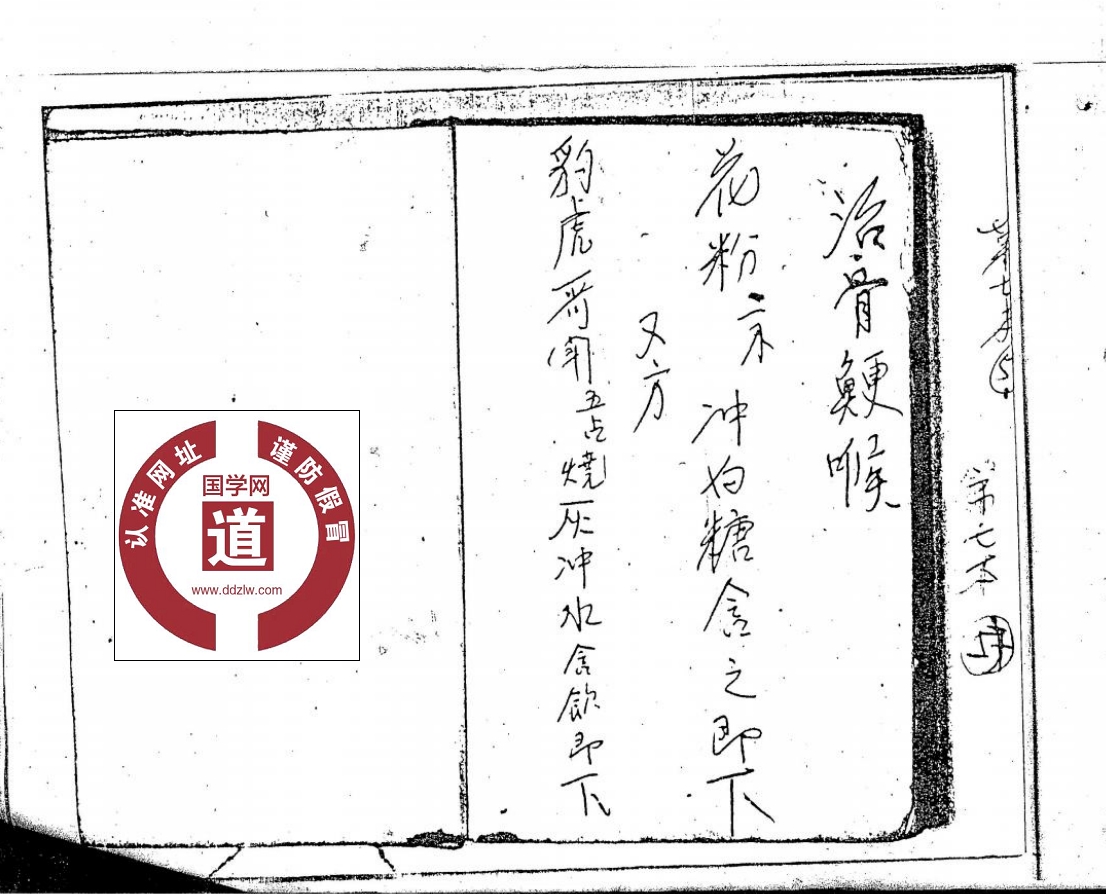 治骨鯁喉
花粉二 冲白糖含之即下
又方
豹虎 五占燒灰冲水含飲即下
第七本
第七本
认准网址
谨防假冒
国学网
道
www.ddzlw.com